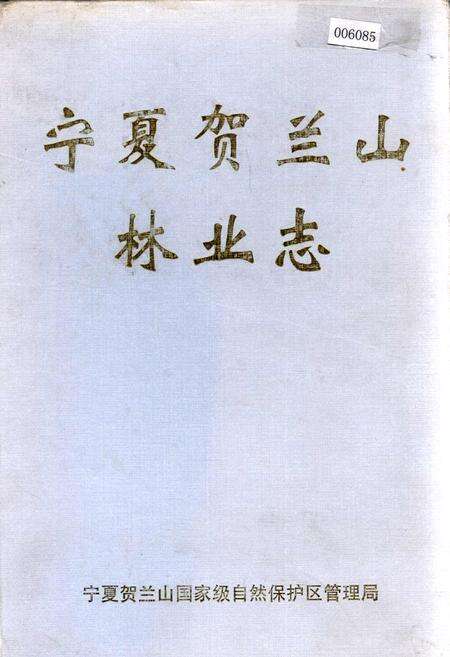 006085
宁夏贺兰山
林业志
宁夏贺兰山国家级自然保护区管理局